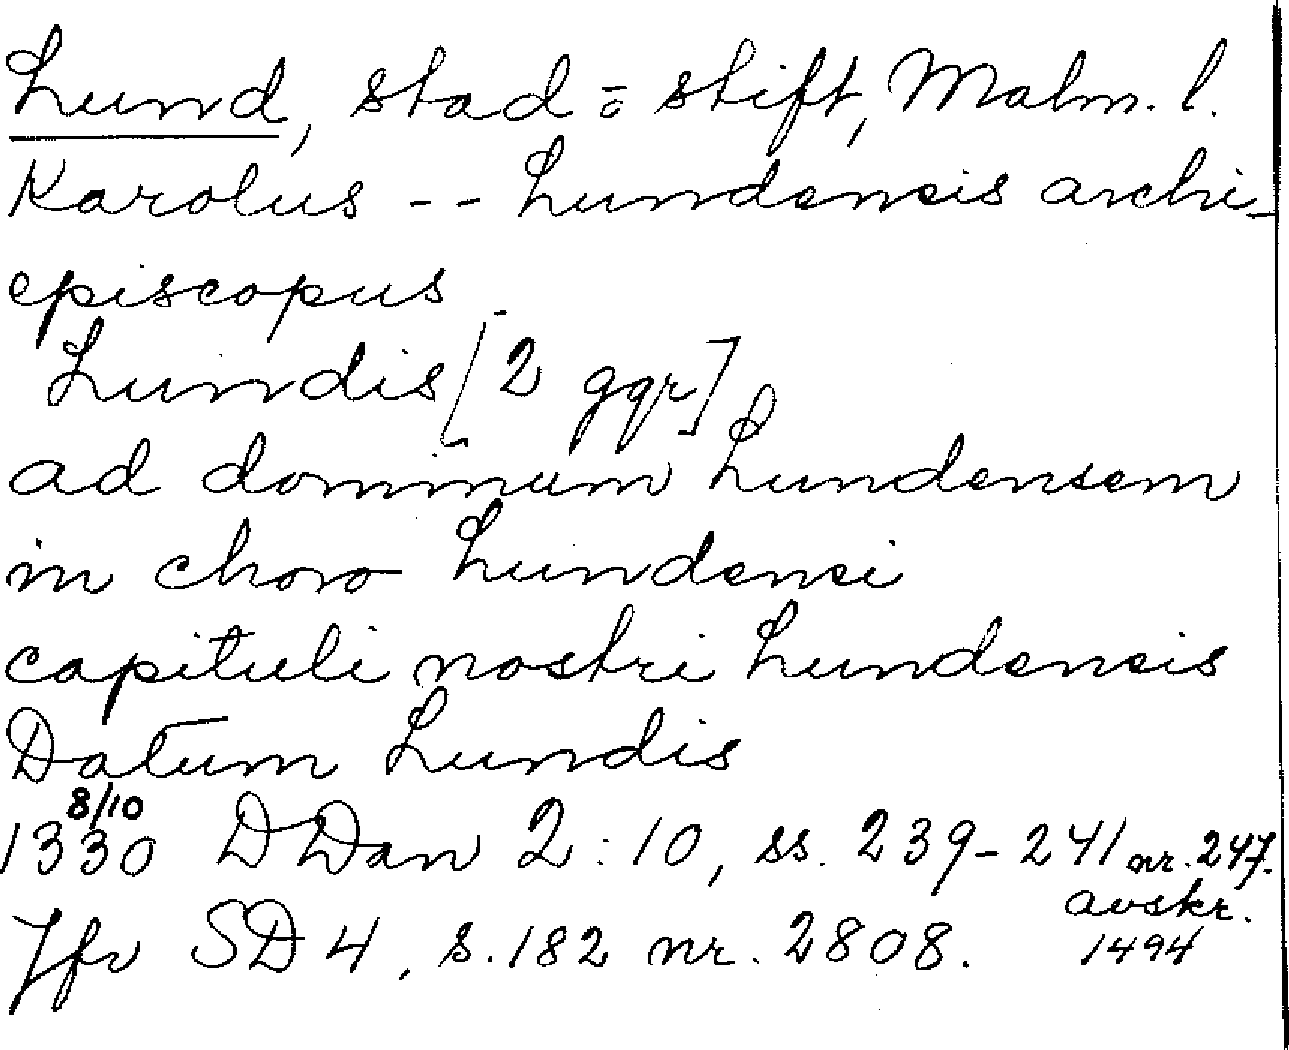 Lund, stad o stift, Malm. l.
Karolus -- Lundensis archi-
episcopus
Lundis [2 ggr]
ad dominum Lundensem
in choro Lundensi
capituli nostri Lundensis
Datum Lundis
8/10
1330 DDan 2:10, ss. 239-241 nr. 247.
avskr.
Jfr SD 4, s. 182 nr. 2808. 1494